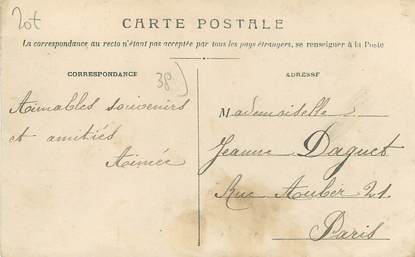 Lot
CARTE POSTALE
La correspondance au recto n'étant pas acceptée par tous les pays étrangers, se renseigner à la Poste
CORRESPONDANCE
38
Aimables souvenirs
et amitiés
Aimée
ADRESSE
Mademoiselle
Jeanne Daguet
Rue Auber 21
Paris